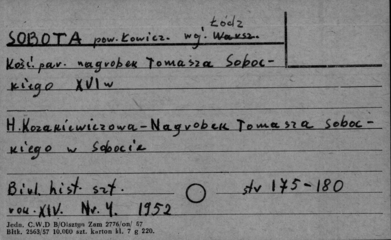 Łódź
SOBOTA pow. Łowicz. woj. Warsz.
Kość. par. nagrobek Tomasza Soboc-
kiego XVI w
H. Kozakiewiczowa - Nagrobek Tomasza Soboc-
kiego w Sobocie
Biul. hist. szt. str 175-180
rok. XIV. Nr. 4. 1952
Jedn. C.W.D B/Olsztyn Zam 2776/on/ 57
Błtk. 2563/57 10.000 szt. karton kl. 7 g 220.